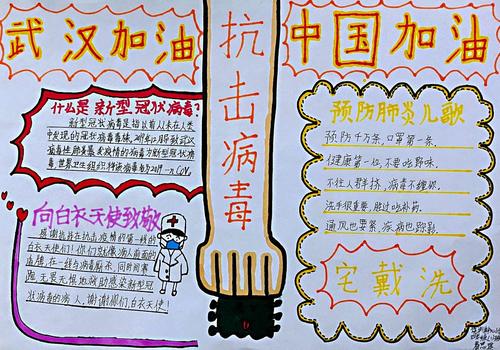 武汉加油
中国加油
抗击病毒
什么是新型冠状病毒?
新型冠状病毒是指以前从未在人类
中发现的冠状病毒毒株。2019年12月导致武汉
病毒性肺炎暴发疫情的病毒为新型冠状病
毒,世界卫生组织将该病毒命为2019-nCOV。
向白衣天使致敬
感谢抗战在抗击疫情的第一线的
白衣天使们!你们就像病人前面的
盾牌,在一线与病毒厮杀,同时间赛
跑,无畏无惧地救助感染新型冠
状病毒的病人,谢谢你们,白衣天使!
预防肺炎儿歌
预防千万条,口罩第一条。
健康第一位,不要吃野味。
不往人群挤,病毒不缠你。
洗手很重要,胜过吃补药。
通风也要紧,疾病也踪影。
宅戴洗